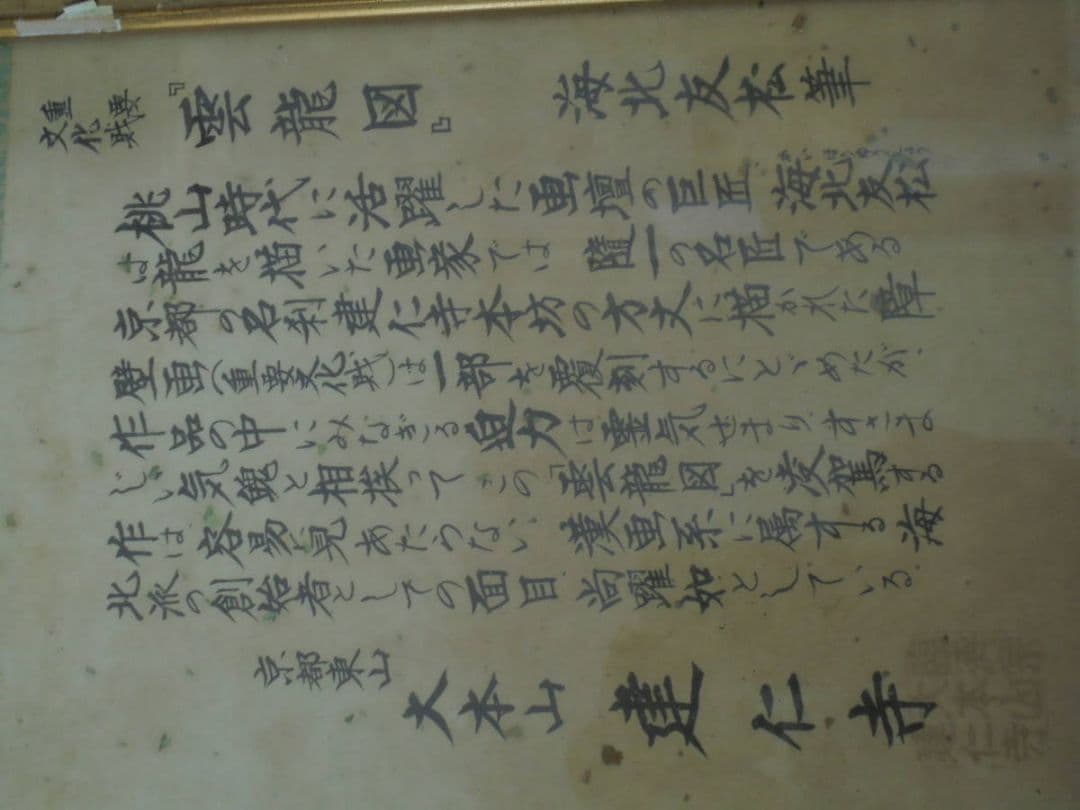 重要文化財『雲龍図』 海北友松筆
桃山時代に活躍した画壇の巨匠 海北友松
かいほうゆうしょう
は龍を描いた画家では 随一の名匠である
京都の名刹建仁寺本坊の方丈に描かれた障
壁画(重要文化財)は一部を覆刻するにとゞめたが、
作品の中にみなぎる迫力は霊気せまりすさま
じい気魄と相挨って この「雲龍図」を凌駕する
作は容易に見あたらない 漢画系に属する海
北派の創始者としての面目 尚躍如としている
京都東山
大本山 建仁寺